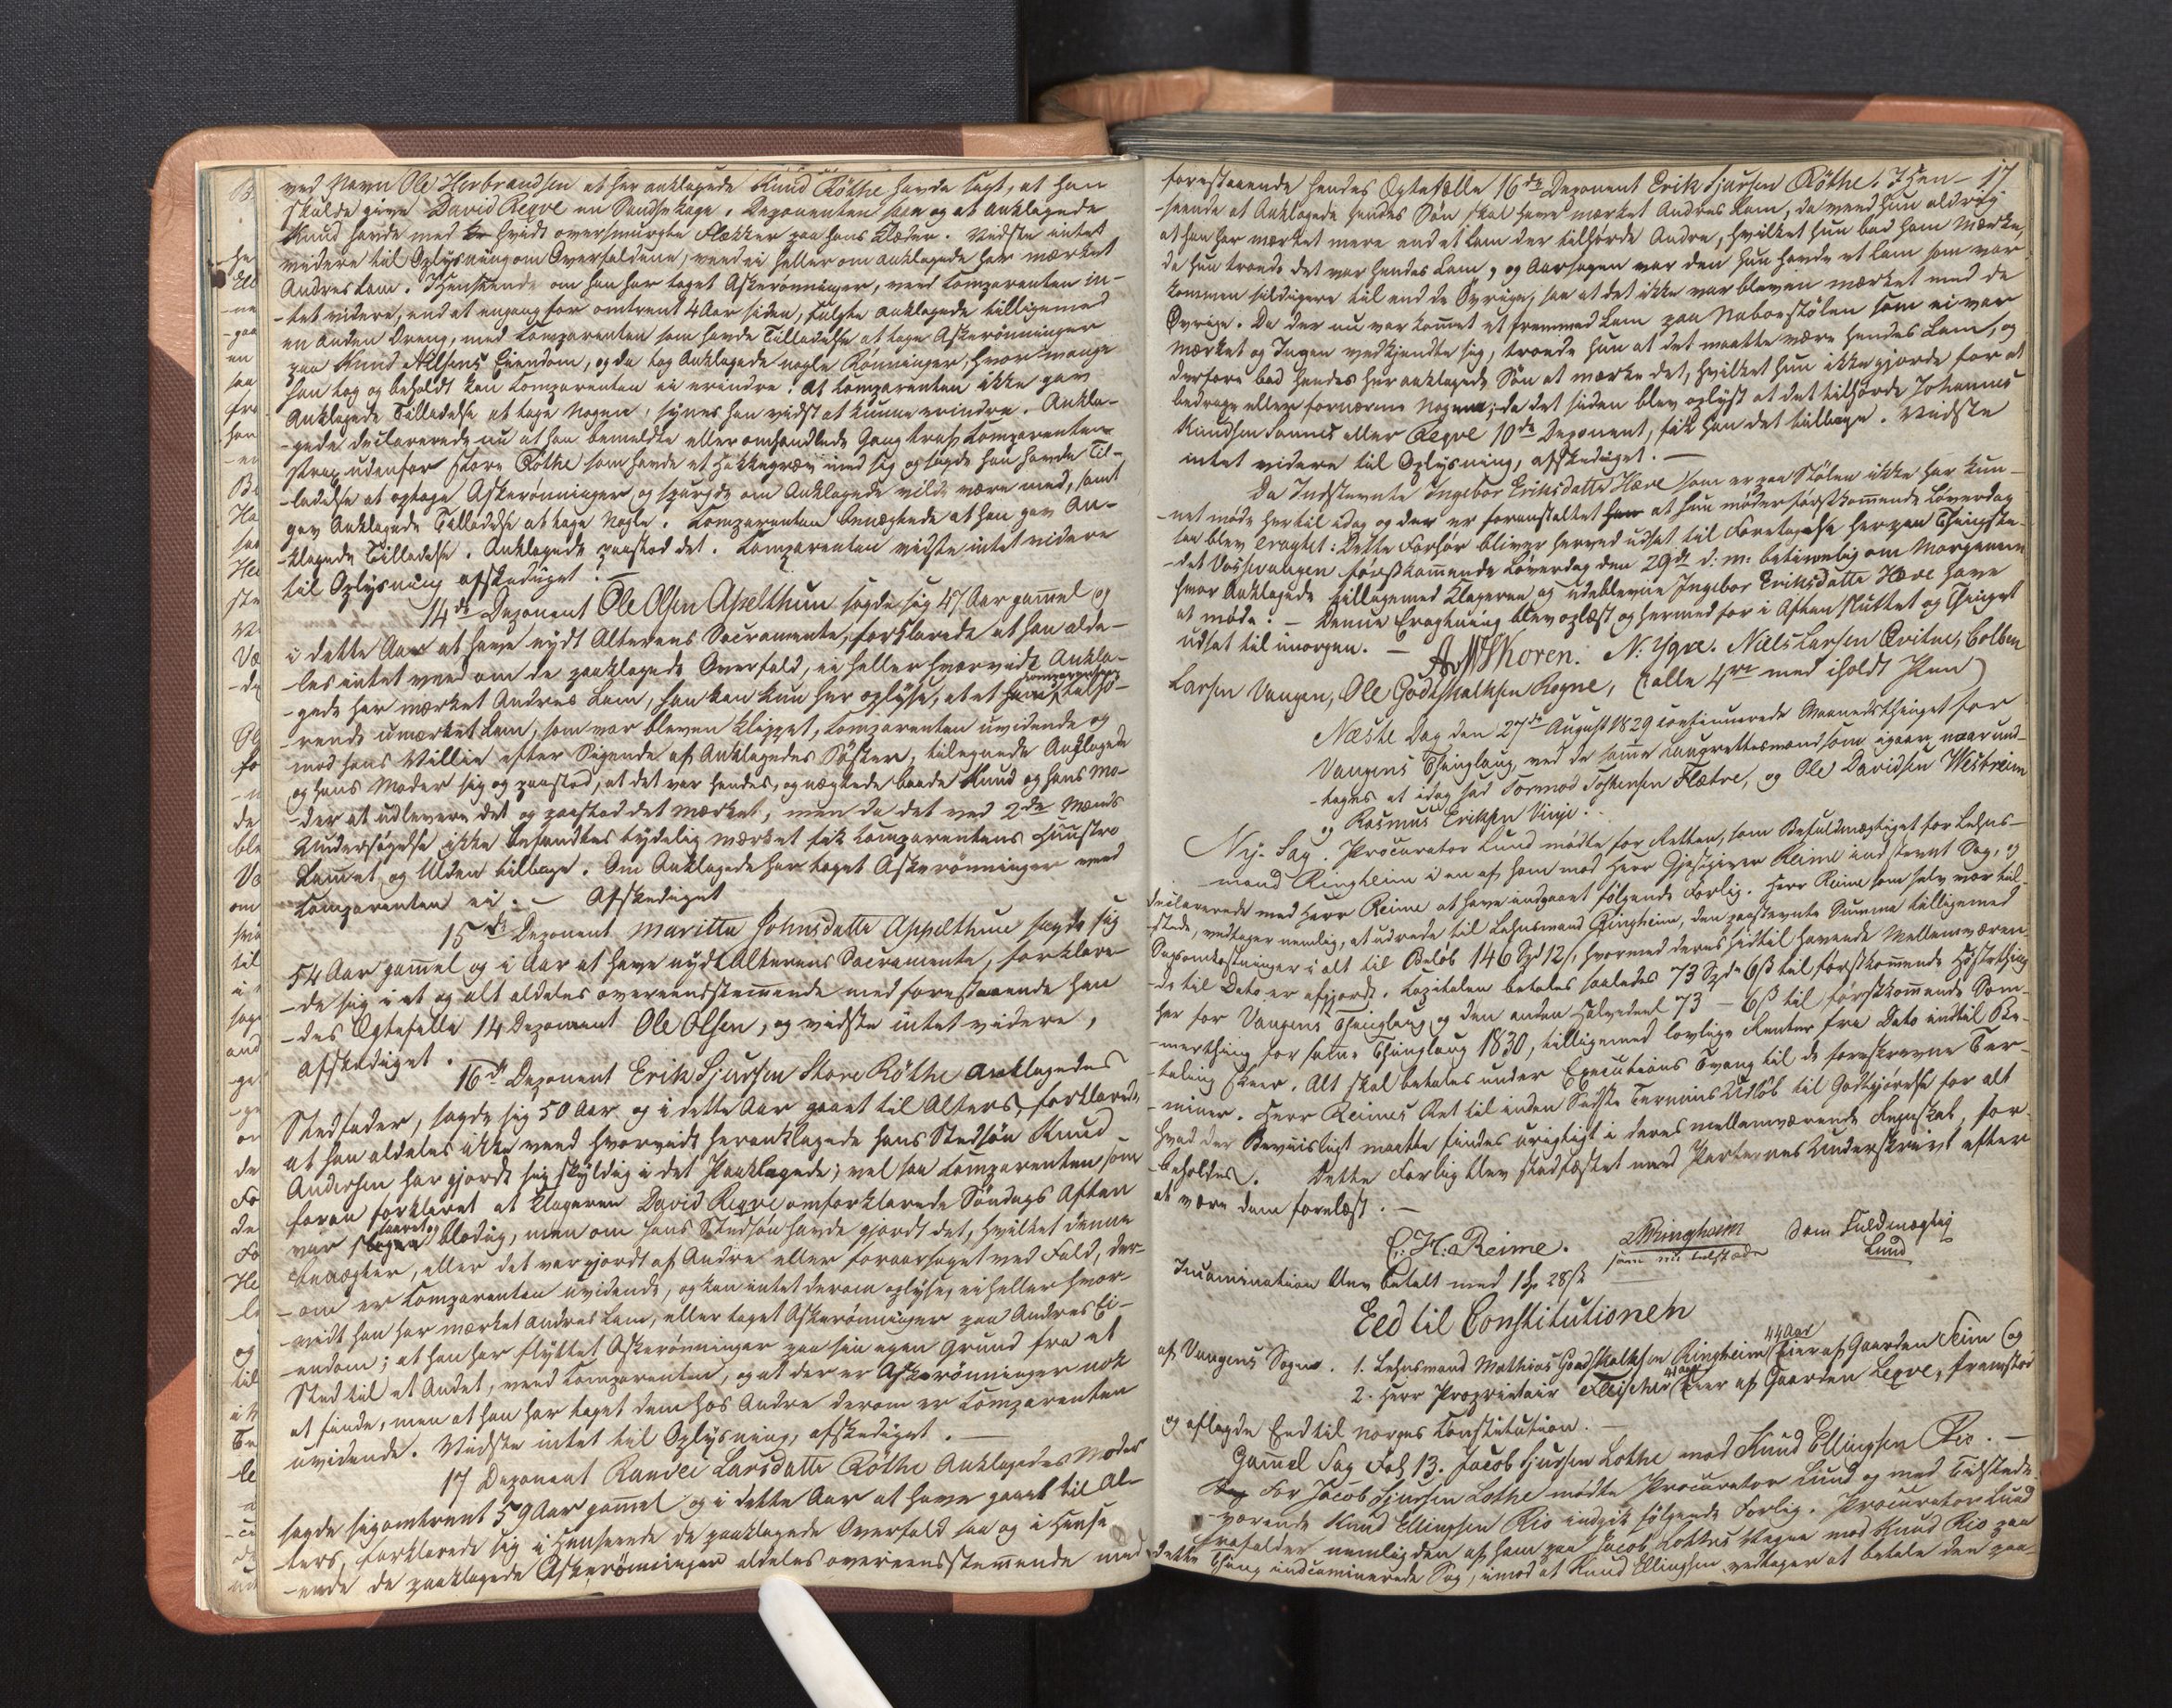 ved Navn Ole Herbrandsen at her anklagede Knud Röthe havde sagt, at han
skulde give David Reqve en Sandsekage. Deponenten saae og at anklagede
Knud havde med hvidt oversmurgte Flækker paa hans Klæder. Vidste intet
videre til Oplysning om Overfaldene, veed ei heller om anklagede har mærket
Andres Lam. I Henseende om han har taget Askerönninger, veed Comparenten in-
-tet videre, end at engang for omtrent 4 Aar siden, fulgte anklagede tilligemed
en anden Dreng, med Comparenten som havde Tilladelse at tage Askerönninger
paa Knud Eiendom, og da tog Anklagede nogle Rönninger, hvor mange
han tog og beholdt kan Comparenten ei erindre. At Comparenten ikke gav
Anklagede Tilladelse at tage Nogen, synes han vidst at kunne erindre. Ankla-
-gede declarerede nu at han bemeldte eller omhandlede Gang traf Comparenten
strax udenfor store Röthe som havde et Hakkegrev med sig og sagde han havde Til-
-ladelse at optage Askerönninger og spurgde om Anklagede vilde være med, samt
gav Anklagede Tilladelse at tage Nogle. Comparenten benægtede at han gav An-
-klagede Tilladelse. Anklagede paastod det. Comparenten vidste intet videre
til Oplysning afskediget. —
14de Deponent Ole Olsen Apelthun sagde sig 47 Aar gamel og
i dette Aar at have nydt Alterens Sacramente, forklarede at han alde-
-les intet veed om de paaklagede Overfald, ei heller hvorvidt Ankla-
-gede har mærket Andres Lam, han kan kun her oplyse, at et Comparenten tilhö-
-rende umærket Lam, som var bleven klippet, Comparenten uvidende og
mod hans Villie efter Sigende af Anklagedes Söster, tilegnede Anklagede
og hans Moder sig og paastod, at det var hendes, og nægtede baade Knud og hans Mo-
-der at udlevere det og paastod det mærket, men da det ved 2de Mænds
Undersögelse ikke befandtes tydelig mærket fik Comparentens Huustro
Lamet og Ulden tilbage. Om Anklagede har taget Askerönninger veed
Comparenten ei. — Afskediget
15de Deponent Maritta Johnsdatte Appelthun sagde sig
54 Aar gamel og i Aar at have nydt Alterens Sacramente, forklare-
-de sig i et og alt aldeles overeenstemmende med forestaaende hen
-des Egtefelle 14 Deponent Ole Olsen, og vidste intet videre,
afskediget.
16de Deponent Erik Sjursen Store Röthe anklagedes
Stedfader, sagde sig 50 Aar og i dette Aar gaaet til Alters, forklarede
at han aldeles ikke veed hvorvidt heranklagede hans Stedsön Knud
Andersen har gjordt sig skyldig i det Paaklagede; vel saa Comparenten som
foran forklaret at Klageren David Reqve omforklarede Söndags Aften
var saaret og blodig, men om hans Stedsön havde gjordt det, hvilket denne
benægter, eller det var gjordt af Andre eller foraarsaget ved Fald, der-
-om er Comparenten uvidende, og kan intet derom oplyse, ei heller hvor-
-vidt han har mærket andres Lam, eller taget Askerönninger paa Andres Ei-
-endom; at han har flyttet Askerönninger paa sin egen Grund fra et
Sted til et Andet, veed Comparenten, og at der er Askerönninger nok
at finde, men at han har taget dem hos Andre derom er Comparenten
uvidende. Vidste intet til Oplysning, afskediget. —
17 Deponent Randei Larsdatte Röthe Anklagedes Moder
sagde sig omtrent 59 Aar gamel og i dette Aar at have gaaet til Al-
-ters, forklarede sig i Henseende de paaklagede Overfald saa og i Hense-
-ende de paaklagede Askerönninger aldeles overeensstemmende med
forestaaende hendes Egtefælle 16de Deponent Erik Sjursen Röthe. I Hen- 17
-seende at Anklagede hendes Sön skal have mærket Andres Lam, da veed hun aldrig
at han har mærket mere end et Lam der tilhörde Andre, hvilket hun bad ham Mærke,
da hun troede det var hendes Lam, og Aarsagen var den hun havde et Lam som var
kommen sildigere til end de Övrige, saa at det ikke var bleven mærket med de
Övrige. Da der nu var komet et fremmed Lam paa Naboestölen som ei var
Mærket og Ingen vedkjendte sig, troede hun at det maatte være hendes Lam, og
derfore bad hendes heranklagede Sön at mærke det, hvilket hun ikke gjorde for at
bedrage eller fornærme Nogen; da det siden blev oplyst at det tilhörde Johannes
Knudsen eller Reqve 10de Deponent, fik han det tilbage. Vidste
intet videre til Oplysning, afskediget. —
Da Indstevnte Ingebor Eriksdatte Hæve som er paa Stölen ikke har kun-
-net möde hertil idag og der er foranstaltet at hun möder förstkomende Löverdag
saa blev eragtet: Dette Forhör bliver herved udsat til Foretagelse herpaa Thingste-
-det Vossevangen förstkomende Löverdag den 29de d: m: betimelig om Morgenen
hvor Anklagede tilligemed Klageren og udeblevne Ingebor Eriksdatte Hæve have
at möde. — Denne Eragtning blev oplæst og hermed for i Aften sluttet og Thinget
udsat til imorgen. — A W Thoren. N: Ygre. Niels Larsen Qvitne, Colben
Larsen Vangen, Ole Godtskalksen Rogne, (alle 4re med iholdt Pen)
Næste Dag den 27de August 1829 continuerede Maanedsthinget for
Vangens Thinglaug, ved de same Laugrettesmænd som igaar, naar und-
-tages at idag sad Tormod Torstensen Flætre, og Ole Davidsen Westreim
og Rasmus Eriksen Vinje.
Ny. Sag. Procurator Lund mödte for Retten, som Befuldmægtiget for Lehns-
mand Ringheim i en af ham mod Herr Gjestgiver Reime indstevnt Sag, og
declarerede med Herr Reime at have indgaaet fölgende Forlig. Herr Reime som selv var til-
-stede, vedtager nemlig, at udrede til Lehnsmand Ringheim, den paastevnte Summa tilligemed
Sagsomkostninger i alt til Belöb 146 Spd 12ß, hvormed deres hidtil havende Mellemværen-
-de til Dato er afgjordt. Capitalen betales saaledes 73 Spd 6ß til förstkomende Höstething
her for Vangens Thinglaug og den anden Halvedeel 73 — 6ß til förstkomende Som-
-merthing for same Thinglaug 1830, tilligemed lovlige Renter fra Dato indtil Be-
-taling skeer. Alt skal betales under Executions Tvang til de foreskrevne Ter-
-miner. Herr Reimes Ret til inden Sidste Termins Udlöb til Godtgjörelse for alt
hvad der Beviisligt maatte findes urigtigt i deres mellemværende Regnskab, for-
-beholdes. Dette Forlig blev stadfæstet med Parternes Underskrivt efter
at være dem forelæst. —
C: H: Reime. Ringheim Som Fuldmægtig
som nu tilstæde Lund
Incamination blev betalt med 28ß
Eed til Constitutionen
af Vangens Sogn. 1. Lehnsmand Mathias Godskalksen Ringheim 44 Aar Eier af Gaarden Seim og
2. Herr Proprietair Fleischer 41 Aar Eier af Gaarden Leqve, fremstod
og aflagde Eed til Norges Constitution. —
Gamel Sag Fol 13. Jacob Sjursen Lothe mod Knud Ellingsen Rio. —
For Jacob Sjursen Lothe mödte Procurator Lund og med Tilstede-
-værende Knud Ellingsen Rio indgik fölgende Forlig. Procurator Lund
frafalder nemlig den af ham paa Jacob Lothes Vegne mod Knud Rio paa
dette Thing indcaminerede Sag, imod at Knud Ellingsen vedtager at betale den paa-